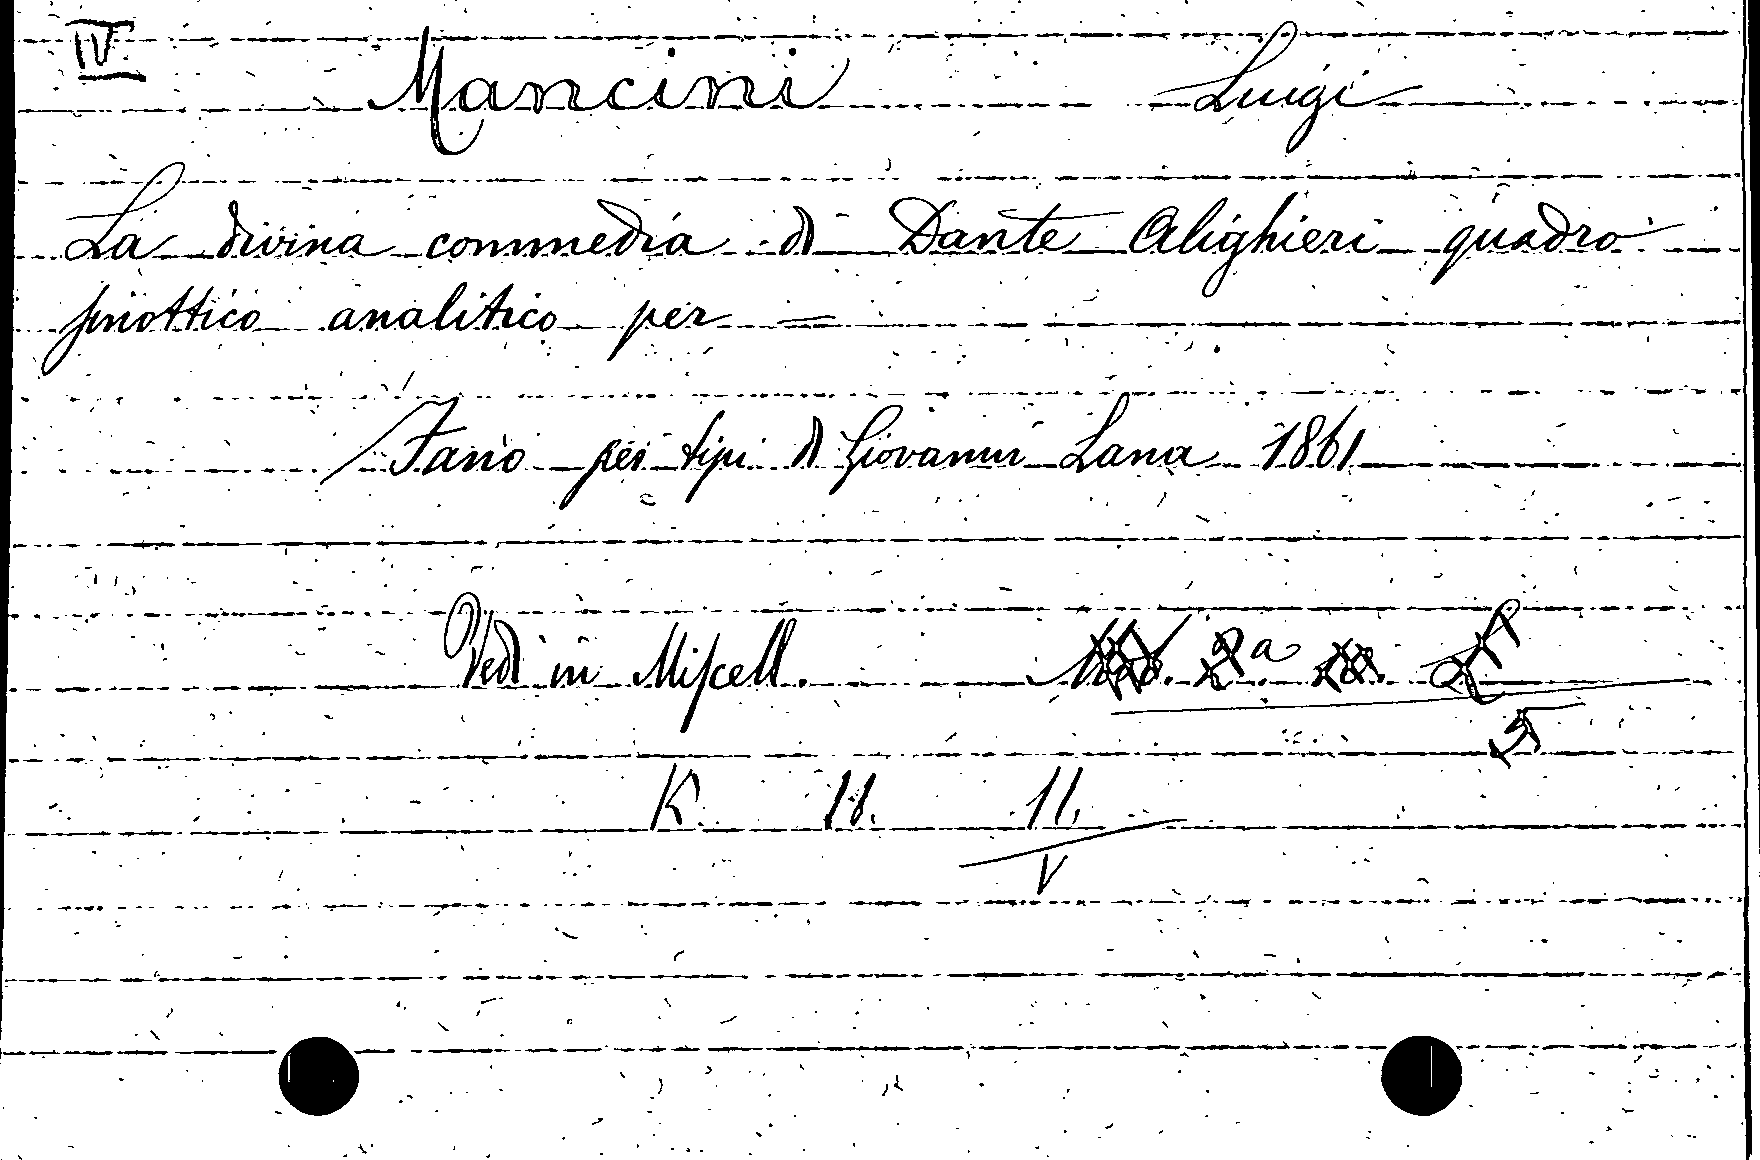 IV.
Mancini Luigi
La divina commedia di Dante Alighieri quadro
sinottico analitico per —
Fano pei tipi di Giovanni Lana 1861
Vedi in Miscell. 2ª
K. 11. 11.
V